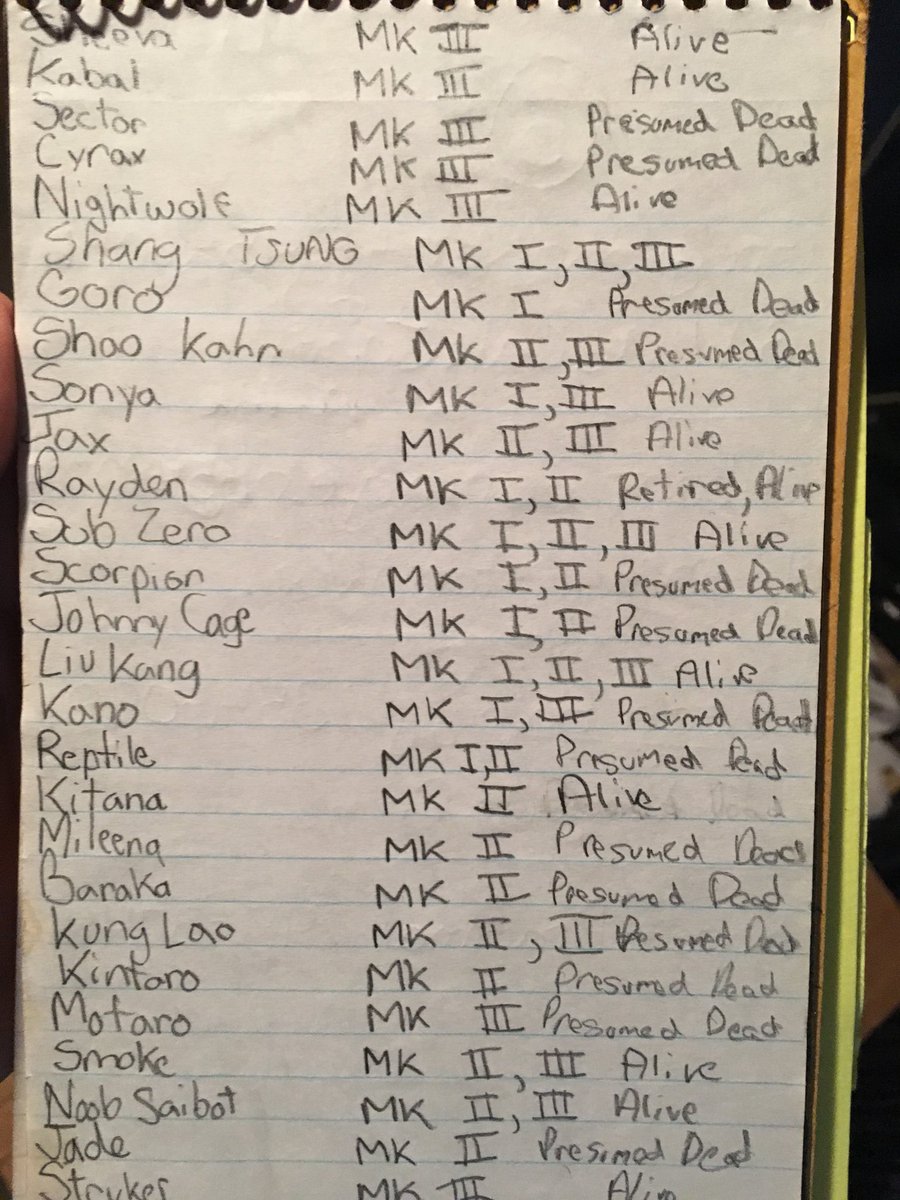 Sheeva MK III Alive
Kabal MK III Alive
Sector MK III Presumed Dead
Cyrax MK III Presumed Dead
Nightwolf MK III Alive
Shang TSUNG MK I, II, III
Goro MK I Presumed Dead
Shao Kahn MK II, III Presumed Dead
Sonya MK I, III Alive
Jax MK II, III Alive
Rayden MK I, II Retired, Alive
Sub Zero MK I, II, III Alive
Scorpion MK I, II Presumed Dead
Johnny Cage MK I, II Presumed Dead
Liu Kang MK I, II, III Alive
Kano MK I, III Presumed Dead
Reptile MK I, II Presumed Dead
Kitana MK II Alive
Mileena MK II Presumed Dead
Baraka MK II Presumed Dead
Kung Lao MK II, III Presumed Dead
Kintaro MK II Presumed Dead
Motaro MK III Presumed Dead
Smoke MK II, III Alive
Noob Saibot MK II, III Alive
Jade MK II Presumed Dead
Stryker MK III Alive